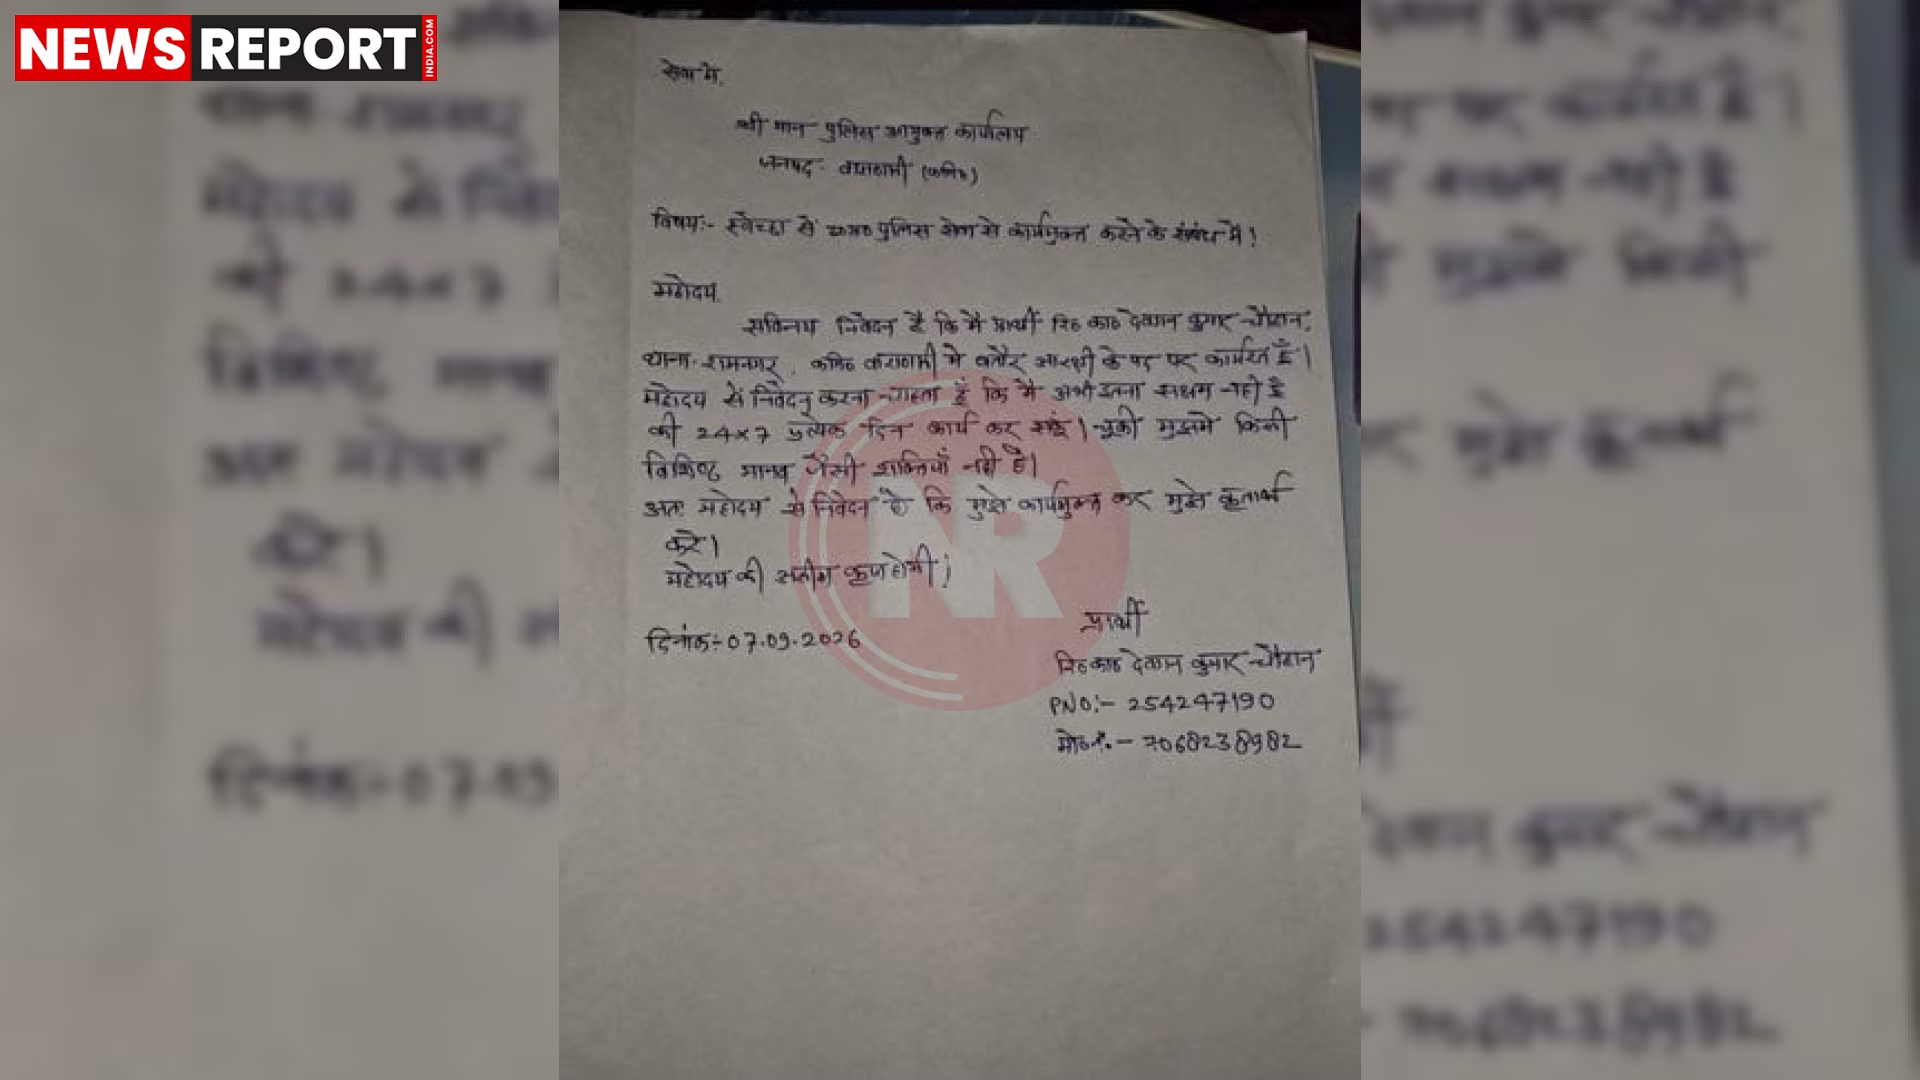 NEWS REPORT INDIA.COM
सेवा में,
श्री मान पुलिस आयुक्त कार्यालय
जनपद - वाराणसी (कमि०)
विषय:- स्वेच्छा से उ०प्र० पुलिस सेवा से कार्यमुक्त करने के संबंध में!
महोदय,
सविनय निवेदन है कि मै प्रार्थी रि० का० देवान कुमार चौहान,
थाना- रामनगर, कमि० वाराणसी मे बतौर आरक्षी के पद पर कार्यरत हूँ।
महोदय से निवेदन करना चाहता हूँ कि मै अभी इतना सक्षम नही हूँ
की 24x7 प्रत्येक दिन कार्य कर सकूं। चूकी मुझमे किसी
विशिष्ट मानव जैसी शक्तियाँ नही है।
अतः महोदय से निवेदन है कि मुझे कार्यमुक्त कर मुझे कृतार्थ
करे।
महोदय की असीम कृपा होगी!
NR
प्रार्थी
दिनांक:- 07.09.2026
रि० का० देवान कुमार चौहान
PNO:- 254247190
मो०नं.- 7068238982